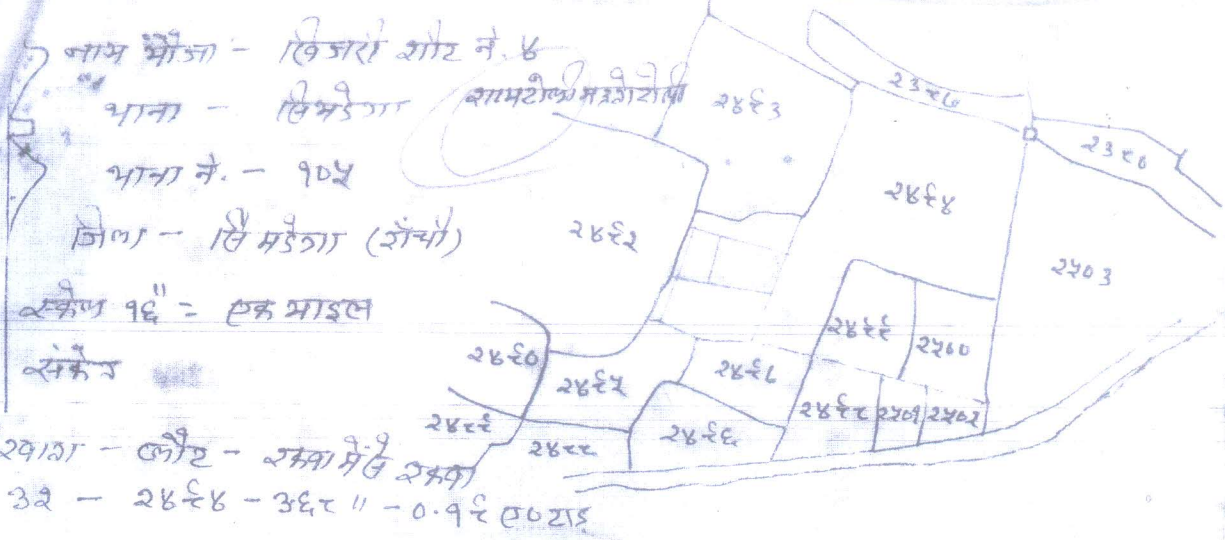 नाम मौजा - खिजरी शीट नं. ४
थाना - सिमडेगा
थाना नं. - १०५
जिला - सिमडेगा (राँची)
स्केल १६" = एक माइल
संकेत
खाता - प्लौट - रकवा में से रकवा
३२ - २४९४ - ३.६८ " - ०.१९ ए०
सामटोली
२४९३
२३८७
२३८०
२४९४
२४९२
२५०३
२४९९
२५००
२४९०
२४९५
२४९७
२४९८
२५०१
२५०२
२४८९
२४८८
२४९६